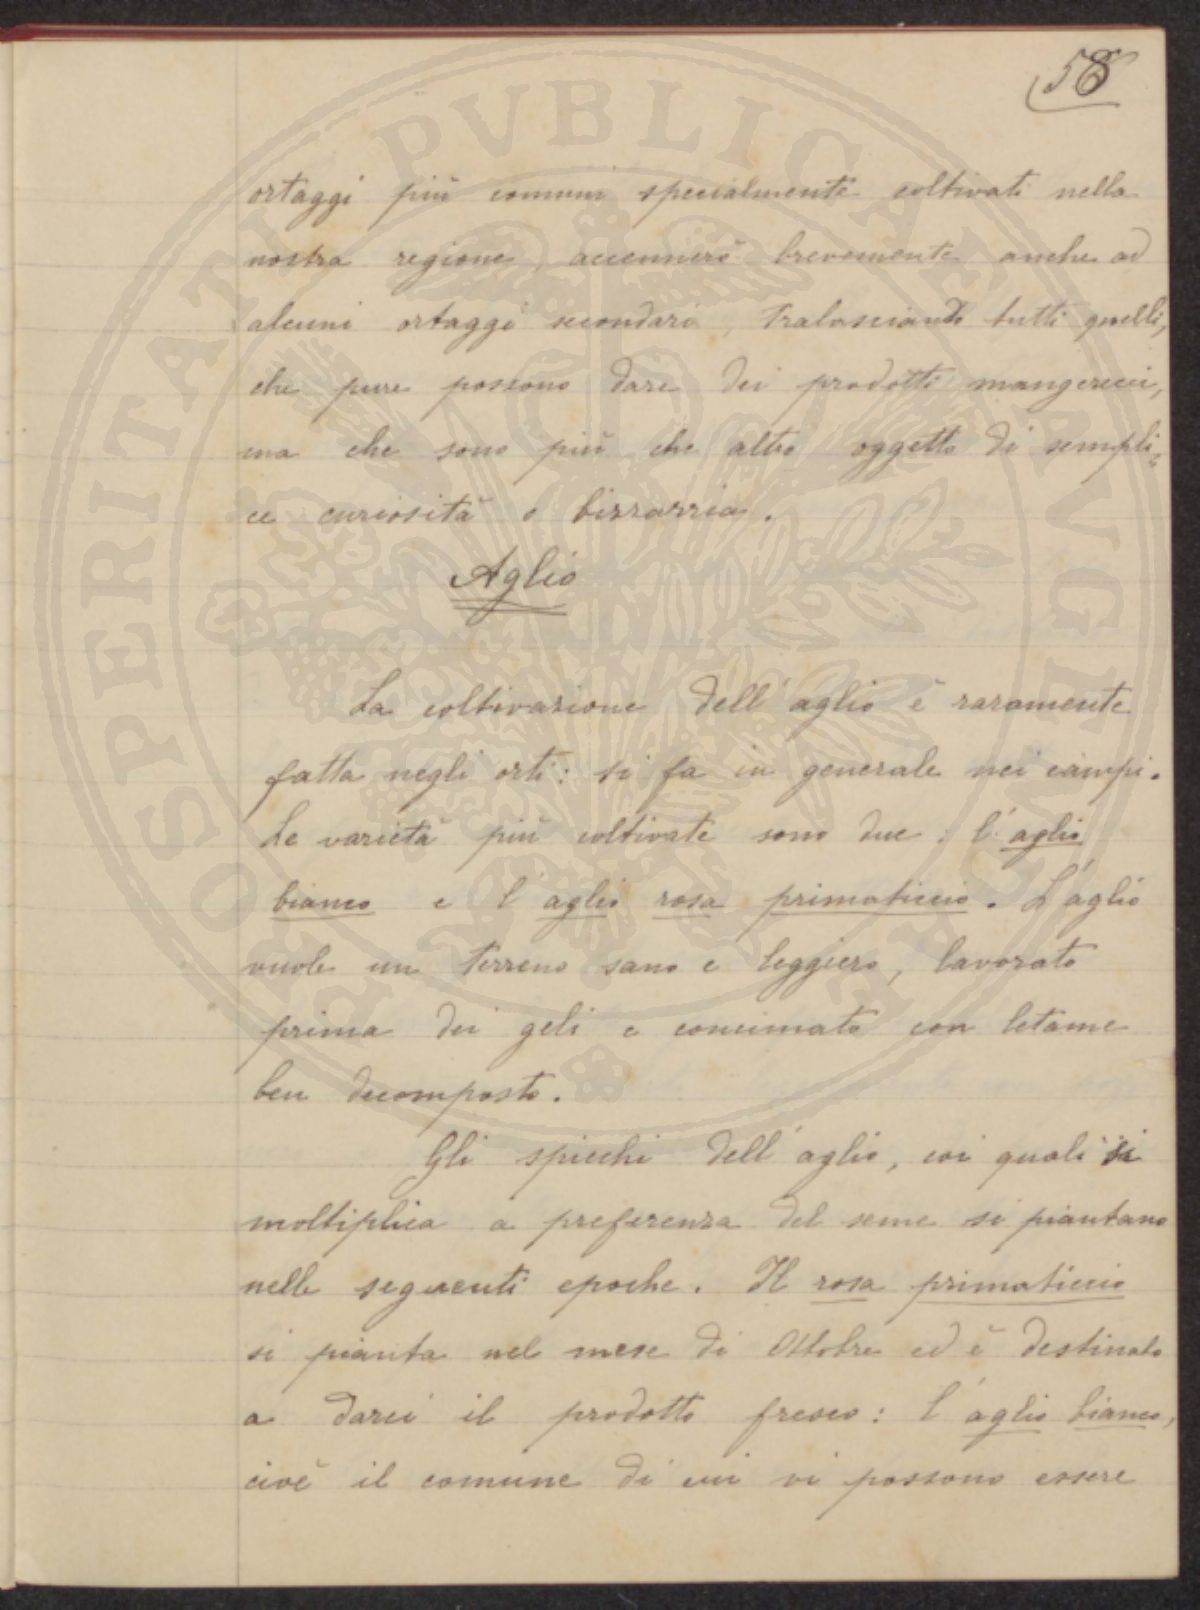 58
ortaggi più comuni specialmente coltivati nella
nostra regione, accennerò brevemente anche ad
alcuni ortaggi secondari, tralasciando tutti quelli,
che pure possono dare dei prodotti mangerecci,
ma che sono più che altro oggetto di sempli=
ce curiosità o bizzarria.
Aglio
La coltivazione dell'aglio è raramente
fatta negli orti: si fa in generale nei campi.
Le varietà più coltivate sono due: l'aglio
bianco e l'aglio rosa primaticcio. L'aglio
vuole un terreno sano e leggiero, lavorato
prima dei geli e concimato con letame
ben decomposto.
Gli spicchi dell'aglio, coi quali si
moltiplica a preferenza del seme si piantano
nelle seguenti epoche. Il rosa primaticcio
si pianta nel mese di Ottobre ed è destinato
a darci il prodotto fresco: l'aglio bianco,
cioè il comune di cui vi possono essere
PROSPERITATI PVBLICAE AVGENDAE